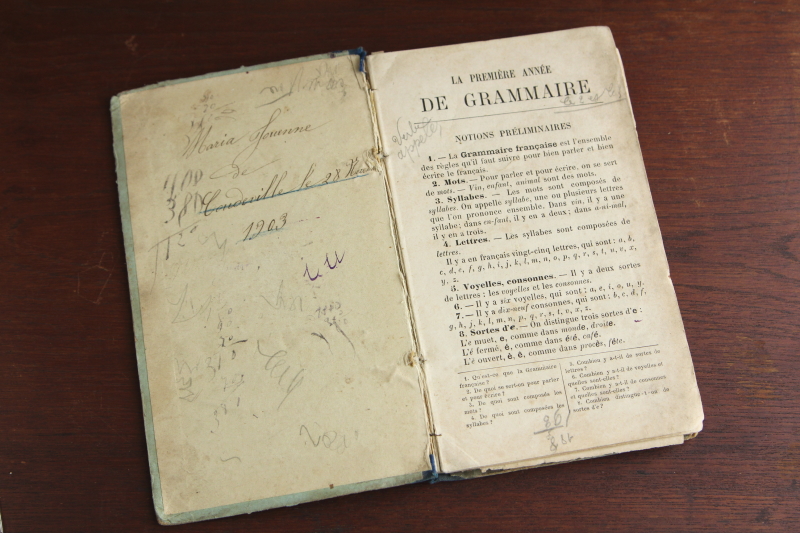 Maria
de
le
1903
LA PREMIÈRE ANNÉE
DE GRAMMAIRE
Verbe
appelé
NOTIONS PRÉLIMINAIRES
1. — La Grammaire française est l'ensemble
des règles qu'il faut suivre pour bien parler et bien
écrire le français.
2. Mots. — Pour parler et pour écrire, on se sert
de mots. — Vin, enfant, animal sont des mots.
3. Syllabes. — Les mots sont composés de
syllabes. On appelle syllabe, une ou plusieurs lettres
que l'on prononce ensemble. Dans vin, il y a une
syllabe; dans en-fant, il y en a deux; dans a-ni-mal,
il y en a trois.
4. Lettres. — Les syllabes sont composées de
lettres.
Il y a en français vingt-cinq lettres, qui sont : a, b,
c, d, e, f, g, h, i, j, k, l, m, n, o, p, q, r, s, t, u, v, x,
y, z.
5. Voyelles, consonnes. — Il y a deux sortes
de lettres : les voyelles et les consonnes.
6. — Il y a six voyelles, qui sont : a, e, i, o, u, y.
7. — Il y a dix-neuf consonnes, qui sont : b, c, d, f,
g, h, j, k, l, m, n, p, q, r, s, t, v, x, z.
8. Sortes d'e. — On distingue trois sortes d'e :
L'e muet, e, comme dans monde, droite.
L'é fermé, é, comme dans été, café.
L'è ouvert, è, ê, comme dans procès, fête.
1. Qu'est-ce que la Grammaire
française ?
2. De quoi se sert-on pour parler
et pour écrire ?
3. De quoi sont composés les
mots ?
4. De quoi sont composées les
syllabes ?
5. Combien y a-t-il de sortes de
lettres ?
6. Combien y a-t-il de voyelles et
quelles sont-elles ?
7. Combien y a-t-il de consonnes
et quelles sont-elles ?
8. Combien distingue-t-on de
sortes d'e ?
86